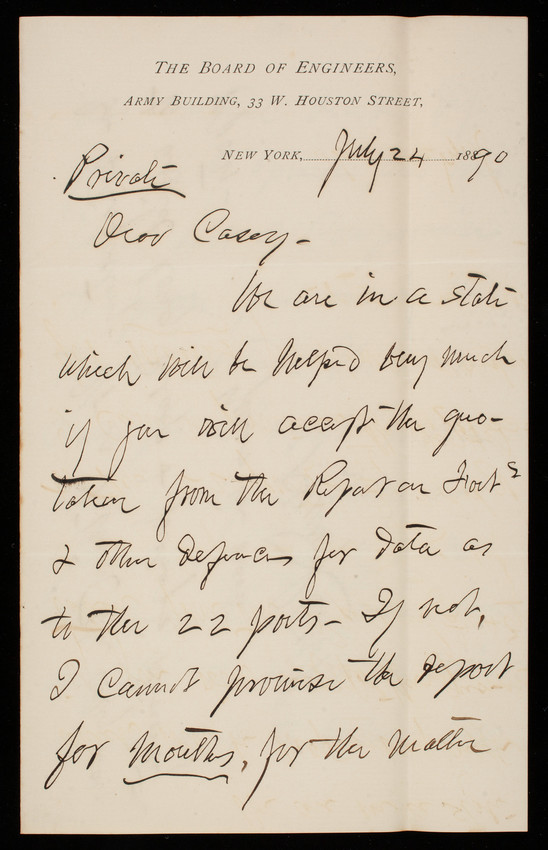 THE BOARD OF ENGINEERS,
ARMY BUILDING, 33 W. HOUSTON STREET,
NEW YORK, July 24 1890
Private
Dear Casey -
We are in a state
which will be helped very much
if you will accept the quo-
tation from the Report on Forts
& other Defences for data as
to the 22 ports - If not,
I cannot promise the report
for months, for the matter